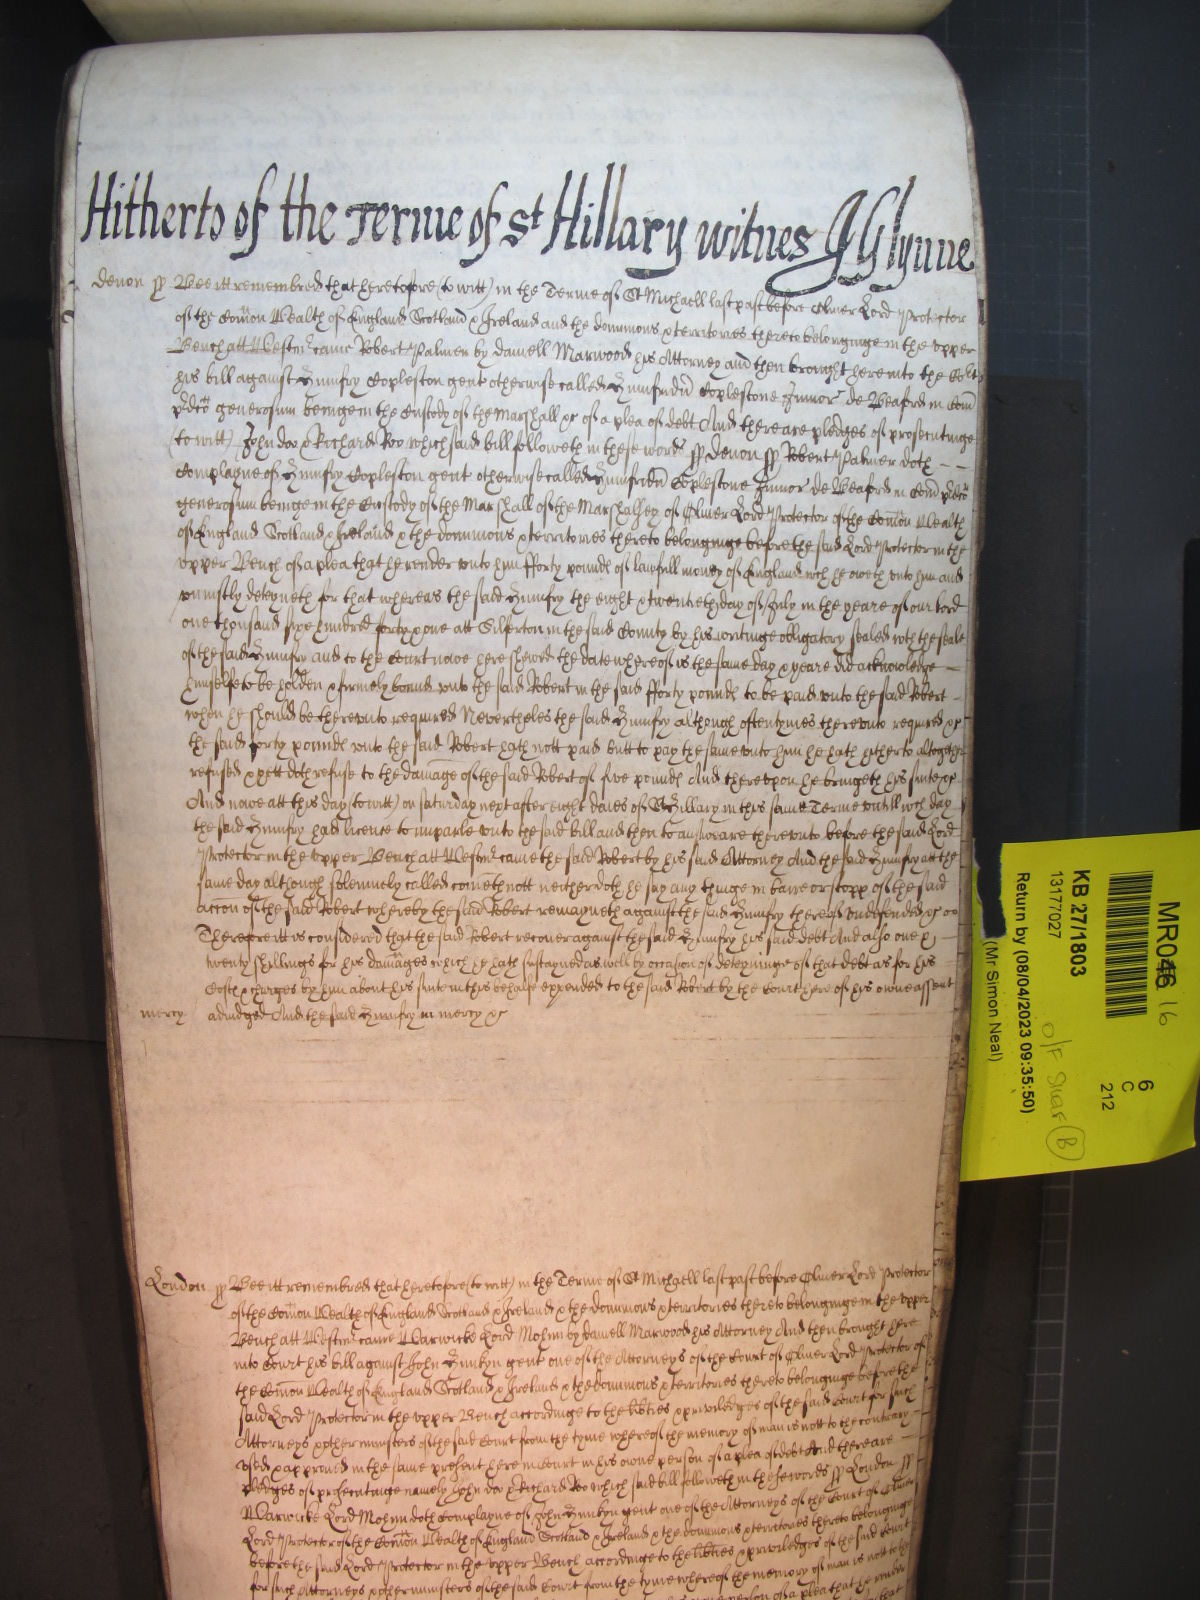 Hitherto of the Terme of St Hillary witnes J Glynne
Devon ss Bee itt remembred that heretofore (to witt) in the Terme of St Michaell last past before Oliver Lord Protector
of the Com̄on Wealth of England Scotland & Ireland and the dominions & territories thereto belonginge in the upper
Bench att Westmr came Robert Palmer by Daniell Marwood his Attorney and then brought here into the Co'rt
his bill against Humfry Copleston gent otherwise called Humfridū Coplestone Junior de Beaford in Com̄
p'dcō generosum beinge in the Custody of the Marshall &c of a plea of debt And there are pledges of prosecutinge
(to witt) John doo & Richard Roo which said bill followeth in these words ss Devon ss Robert Palmer doth
Complayne of Humfry Copleston gent otherwise called Humfridū Coplestone Junior de Beaford in Com̄ p'dcō
generosum beinge in the Custody of the Marshall of the Marshalsey of Oliver Lord Protector of the Com̄on Wealth
of England Scotland & Ireland & the dominions & territories thereto belonginge before the said Lord Protector in the
upper Bench of a plea that he render unto him fforty pounds of lawfull money of England wch he oweth unto him and
uniustly deteyneth for that whereas the said Humfry the eight & twentieth day of July in the yeare of our lord
one thousand sixe hundred forty & one att Silferton in the said County by his writinge obligatory sealed wth the seale
of the said Humfry and to the Court nowe here shewed the date whereof is the same day & yeare did acknowledge
himselfe to be holden & firmely bound unto the said Robert in the said fforty pounds to be paid unto the said Robert
when he should be thereunto required Nevertheles the said Humfry although oftentymes thereunto required &c
the said forty pounds unto the said Robert hath nott paid butt to pay the same unto him he hath hitherto altogether
refused & yett doth refuse to the damage of the said Robert of five pounds And thereupon he bringeth his suite &c
And nowe att this day (to witt) on saturday next after eight daies of St Hillary in this same Terme untill wch day
the said Humfry had licence to imparle unto the said bill and then to answeare thereunto before the said Lord
Protector in the upper Bench att Westmr came the said Robert by his said Attorney And the said Humfry att the
same day although solemnely called cometh nott neither doth he say any thinge in barre or stopp of the said
accōn of the said Robert whereby the said Robert remayneth against the said Humfry thereof undefended &c
Therefore itt is considered that the said Robert recover against the said Humfry his said debt And also one &
twenty shillings for his damages which he hath sustayned as well by occasion of deteyninge of that debt as for his
Costs & charges by him about his suite in this behalfe expended to the said Robert by the Court here of his owne assent
mercy adiudged And the said Humfry in mercy &c
London ss Bee itt remembred that heretofore (to witt) in the Terme of St Michaell last past before Oliver Lord Protector
of the Com̄on Wealth of England Scotland & Ireland & the dominions & territories thereto belonginge in the upper
Bench att Westmr came Warwicke Lord Mohun by Daniell Marwood his Attorney And then brought here
into Court his bill against John Hunkyn gent one of the Attorneys of the Court of Oliver Lord Protector of
the Com̄on Wealth of England Scotland & Ireland & the dominions & territories thereto belonginge before the
said Lord Protector in the upper Bench accordinge to the lib'ties & priviledges of the said Court for such
Attorneys & other ministers of the said Court from the tyme whereof the memory of man is nott to the contrary
used & approved in the same present here in Court in his owne person of a plea of debt And there are
pledges of prosecutinge namely John doo & Richard Roo which said bill followeth in these words ss London ss
Warwicke Lord Mohun doth complayne of John Hunkyn gent one of the Attorneys of the Court of Oliver
Lord Protector of the Com̄on Wealth of England Scotland & Ireland & the dominions & territories thereto belonginge
before the said Lord Protector in the upper Bench accordinge to the lib'ties & priviledges of the said Court
for such Attorneys & other ministers of the said Court from the tyme whereof the memory of man is nott to the
person of a plea that he render
MR046 16
6
C
212
KB 27/1803
13177027
O/F Shelf B
Return by (08/04/2023 09:35:50)
(Mr Simon Neal)